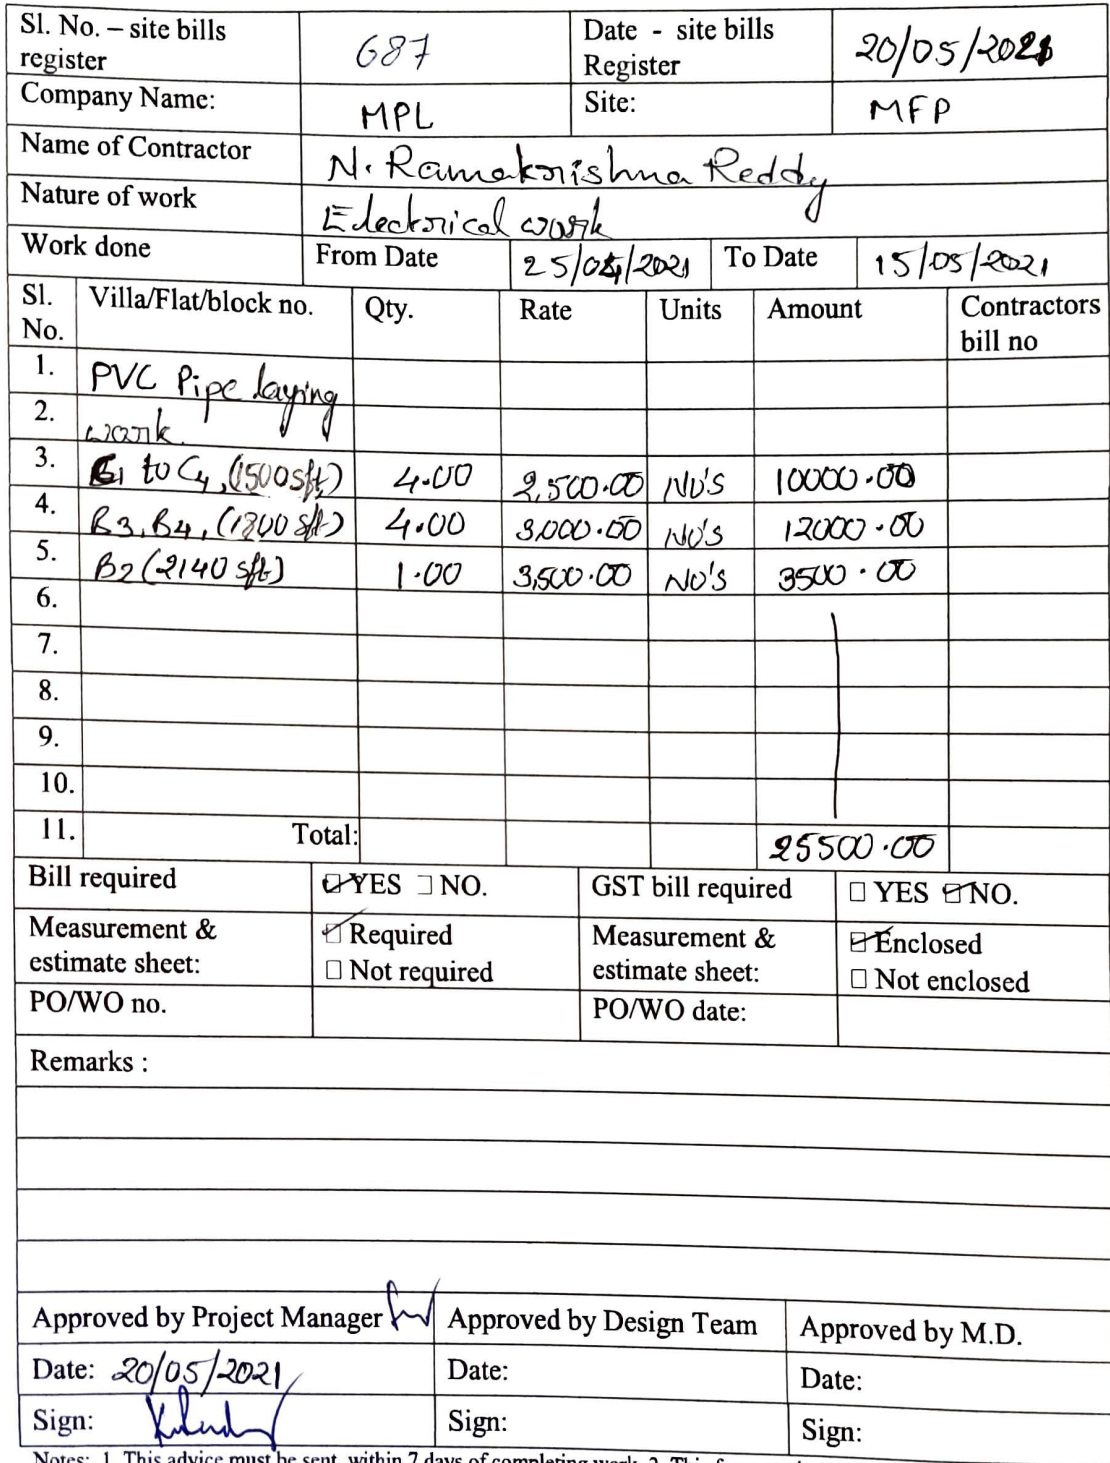 Sl. No. – site bills register 687 Date - site bills Register 20/05/2021
Company Name: MPL Site: MFP
Name of Contractor N. Ramakrishna Reddy
Nature of work Electrical work
Work done From Date 25/04/2021 To Date 15/05/2021
Sl. No. Villa/Flat/block no. Qty. Rate Units Amount Contractors bill no
1. PVC Pipe laying
2. work.
3. C1 to C4, (1500 sft) 4.00 2,500.00 No's 10000.00
4. B3, B4, (1800 sft) 4.00 3,000.00 No's 12000.00
5. B2 (2140 sft) 1.00 3,500.00 No's 3500.00
6.
7.
8.
9.
10.
11. Total: 25500.00
Bill required YES NO. GST bill required YES NO.
Measurement & estimate sheet: Required Not required Measurement & estimate sheet: Enclosed Not enclosed
PO/WO no. PO/WO date:
Remarks :
Approved by Project Manager Approved by Design Team Approved by M.D.
Date: 20/05/2021 Date: Date:
Sign: Sign: Sign:
Notes: 1. This advice must be sent within 7 days of completing work. 2. This